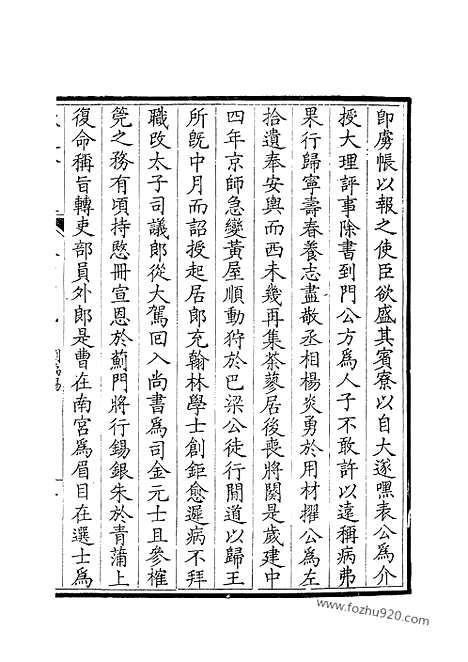 即虜帳以報之使臣欲盛其賓寮以自大遂嘿表公為介
授大理評事除書到門公方為人子不敢許以遠稱病弗
果行歸寧壽春養志盡敬丞相楊炎勇於用材擢公為左
拾遺奉安輿而西未幾再集荼蓼居後喪將闋是歲建中
四年京師急變黃屋順動狩於巴梁公徒行間道以歸王
所既中月而詔授起居郎充翰林學士創鉅愈遲病不拜
職改太子司議郎從大駕回入尚書為司金元士且參榷
筦之務有頃持愍冊宣恩於薊門將行錫銀朱於青蒲上
復命稱旨轉吏部員外郎是曹在南宮為眉目在選士為
www.fozhu920.com